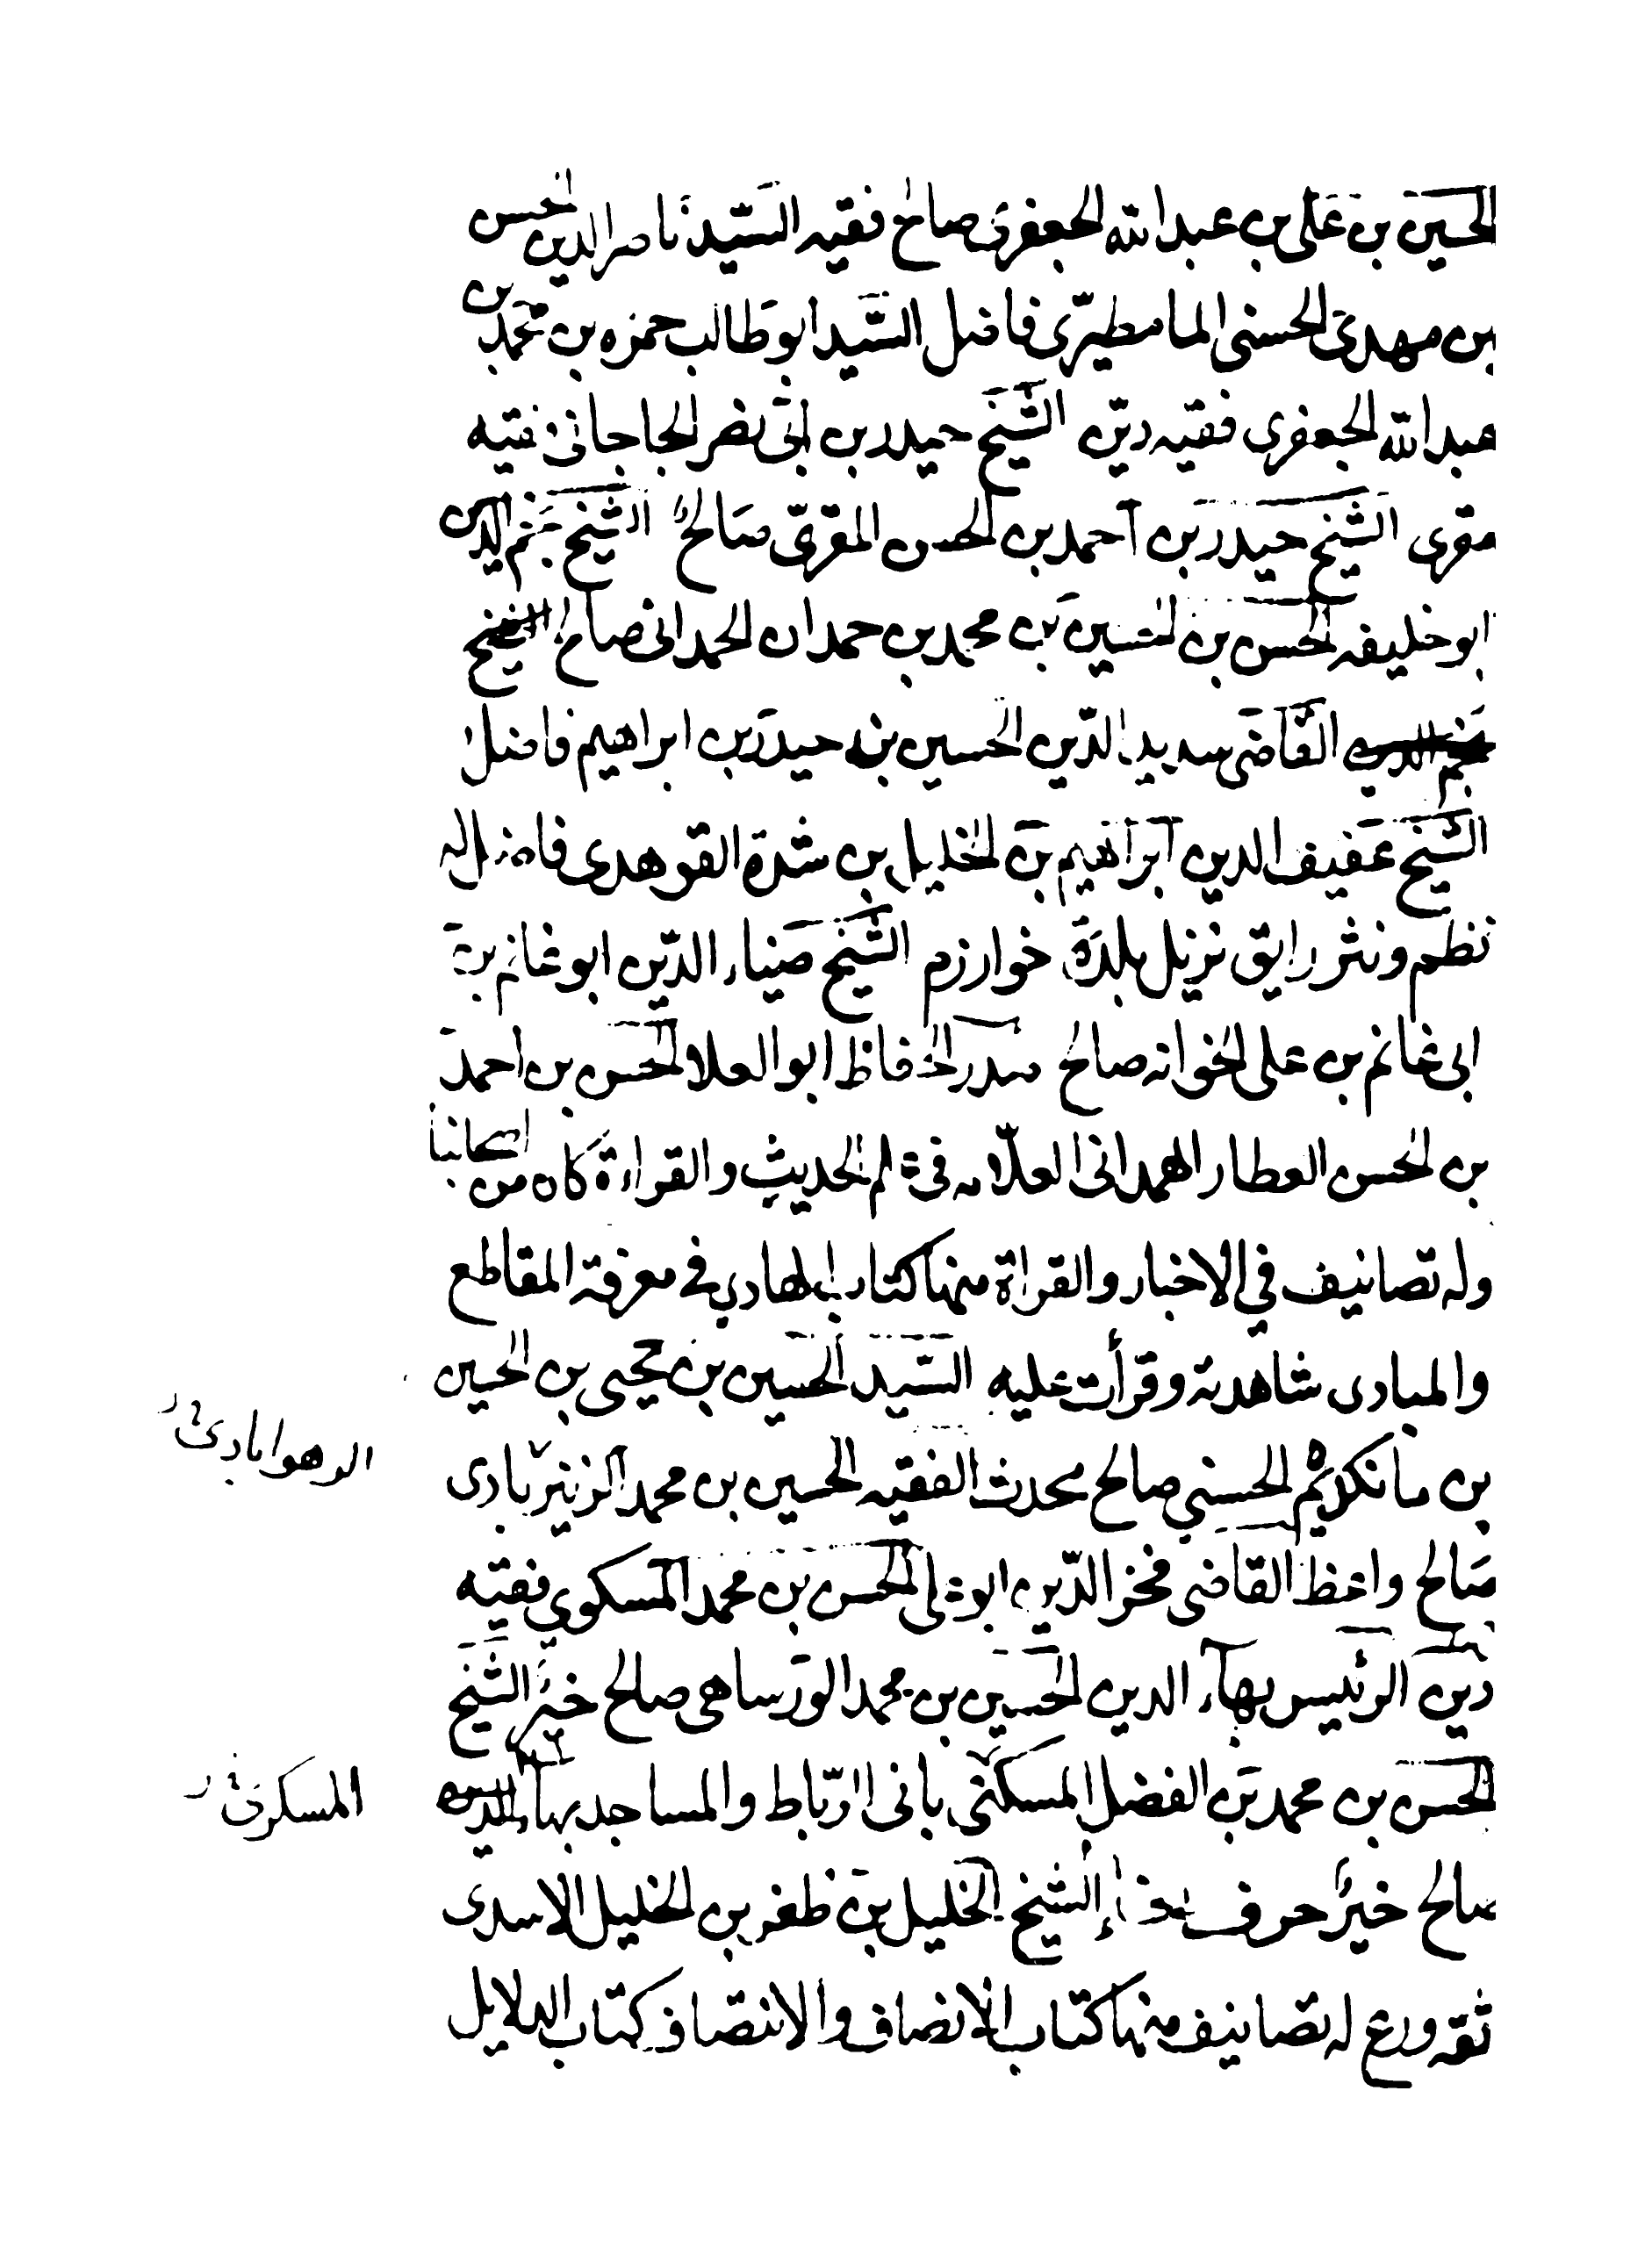 الحسين بن علي بن عبد الله الجعفرى صالح فقيه السّيد ناصر الدين الحسن
بن مهدى الحسنى المامطيرّى فاضل السّيد ابوطالب حمزه بن محمّد بن
عبد الله الجعفرى فقيه ديّن الشّيخ حيدر بن ابى نصر الجاجانى فقيه
مقرى الشّيخ حيدر بن احمد بن الحسن المقرىّ صالحٌ الشّيخ نجم الدين
ابو خليفه الحسن بن الحسين بن محمد بن حمدان الحمدانى صالح الشيخ
نجم الدين القاضى سديد الدّين الحسين بن حيدر بن ابراهيم فاضل
الشّيخ عفيف الدين ابراهيم بن الخليل بن شدة القوهدى فاضل له
نظم ونثر رايق نزيل بلدة خوارزم الشّيخ ضياء الدّين ابو غانم بن
ابى غانم بن على الخوانه صالح صدر الحفاظ ابو العلا الحسن بن احمد
بن الحسن العطار الهمدانى العلاّمه فى علم الحديث والقراءة كان من اصحابنا
وله تصانيف في الاخبار والقراة منها كتاب الهادي في معرفة المقاطع
والمبادى شاهدته وقرأت عليه السّيد الحسين بن يحيى بن الحسين
بن مانكديم الحسني صالح محدث الفقيه الحسين بن محمد الزينربادى
الدهوابادى
صالح واعظ القاضى فخر الدّين ابو على الحسن بن محمد المسكوي فقيه
ديّن الرئيس بهآء الدين الحسين بن محمد الورساهى صالح خيّر الشّيخ
الحسن بن محمد بن الفضل المسكنى بانى الرّباط والمساجد بهاء الدين
المسكرى
صالح خيّر حرف الخاء الشيخ الخليل بن ظفر بن الخليل الاسدى
ثقه ورع له تصانيف منها كتاب الانصاف والانتصاف كتاب الدلايل